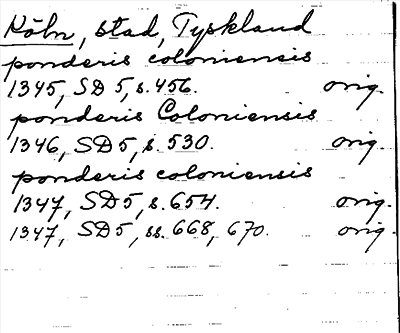 Köln, stad, Tyskland
ponderis coloniensis
1345, SD 5, s. 456. orig.
ponderis Coloniensis
1346, SD 5, s. 530. orig.
ponderis coloniensis
1347, SD 5, s. 654. orig.
1347, SD 5, ss. 668, 670. orig.